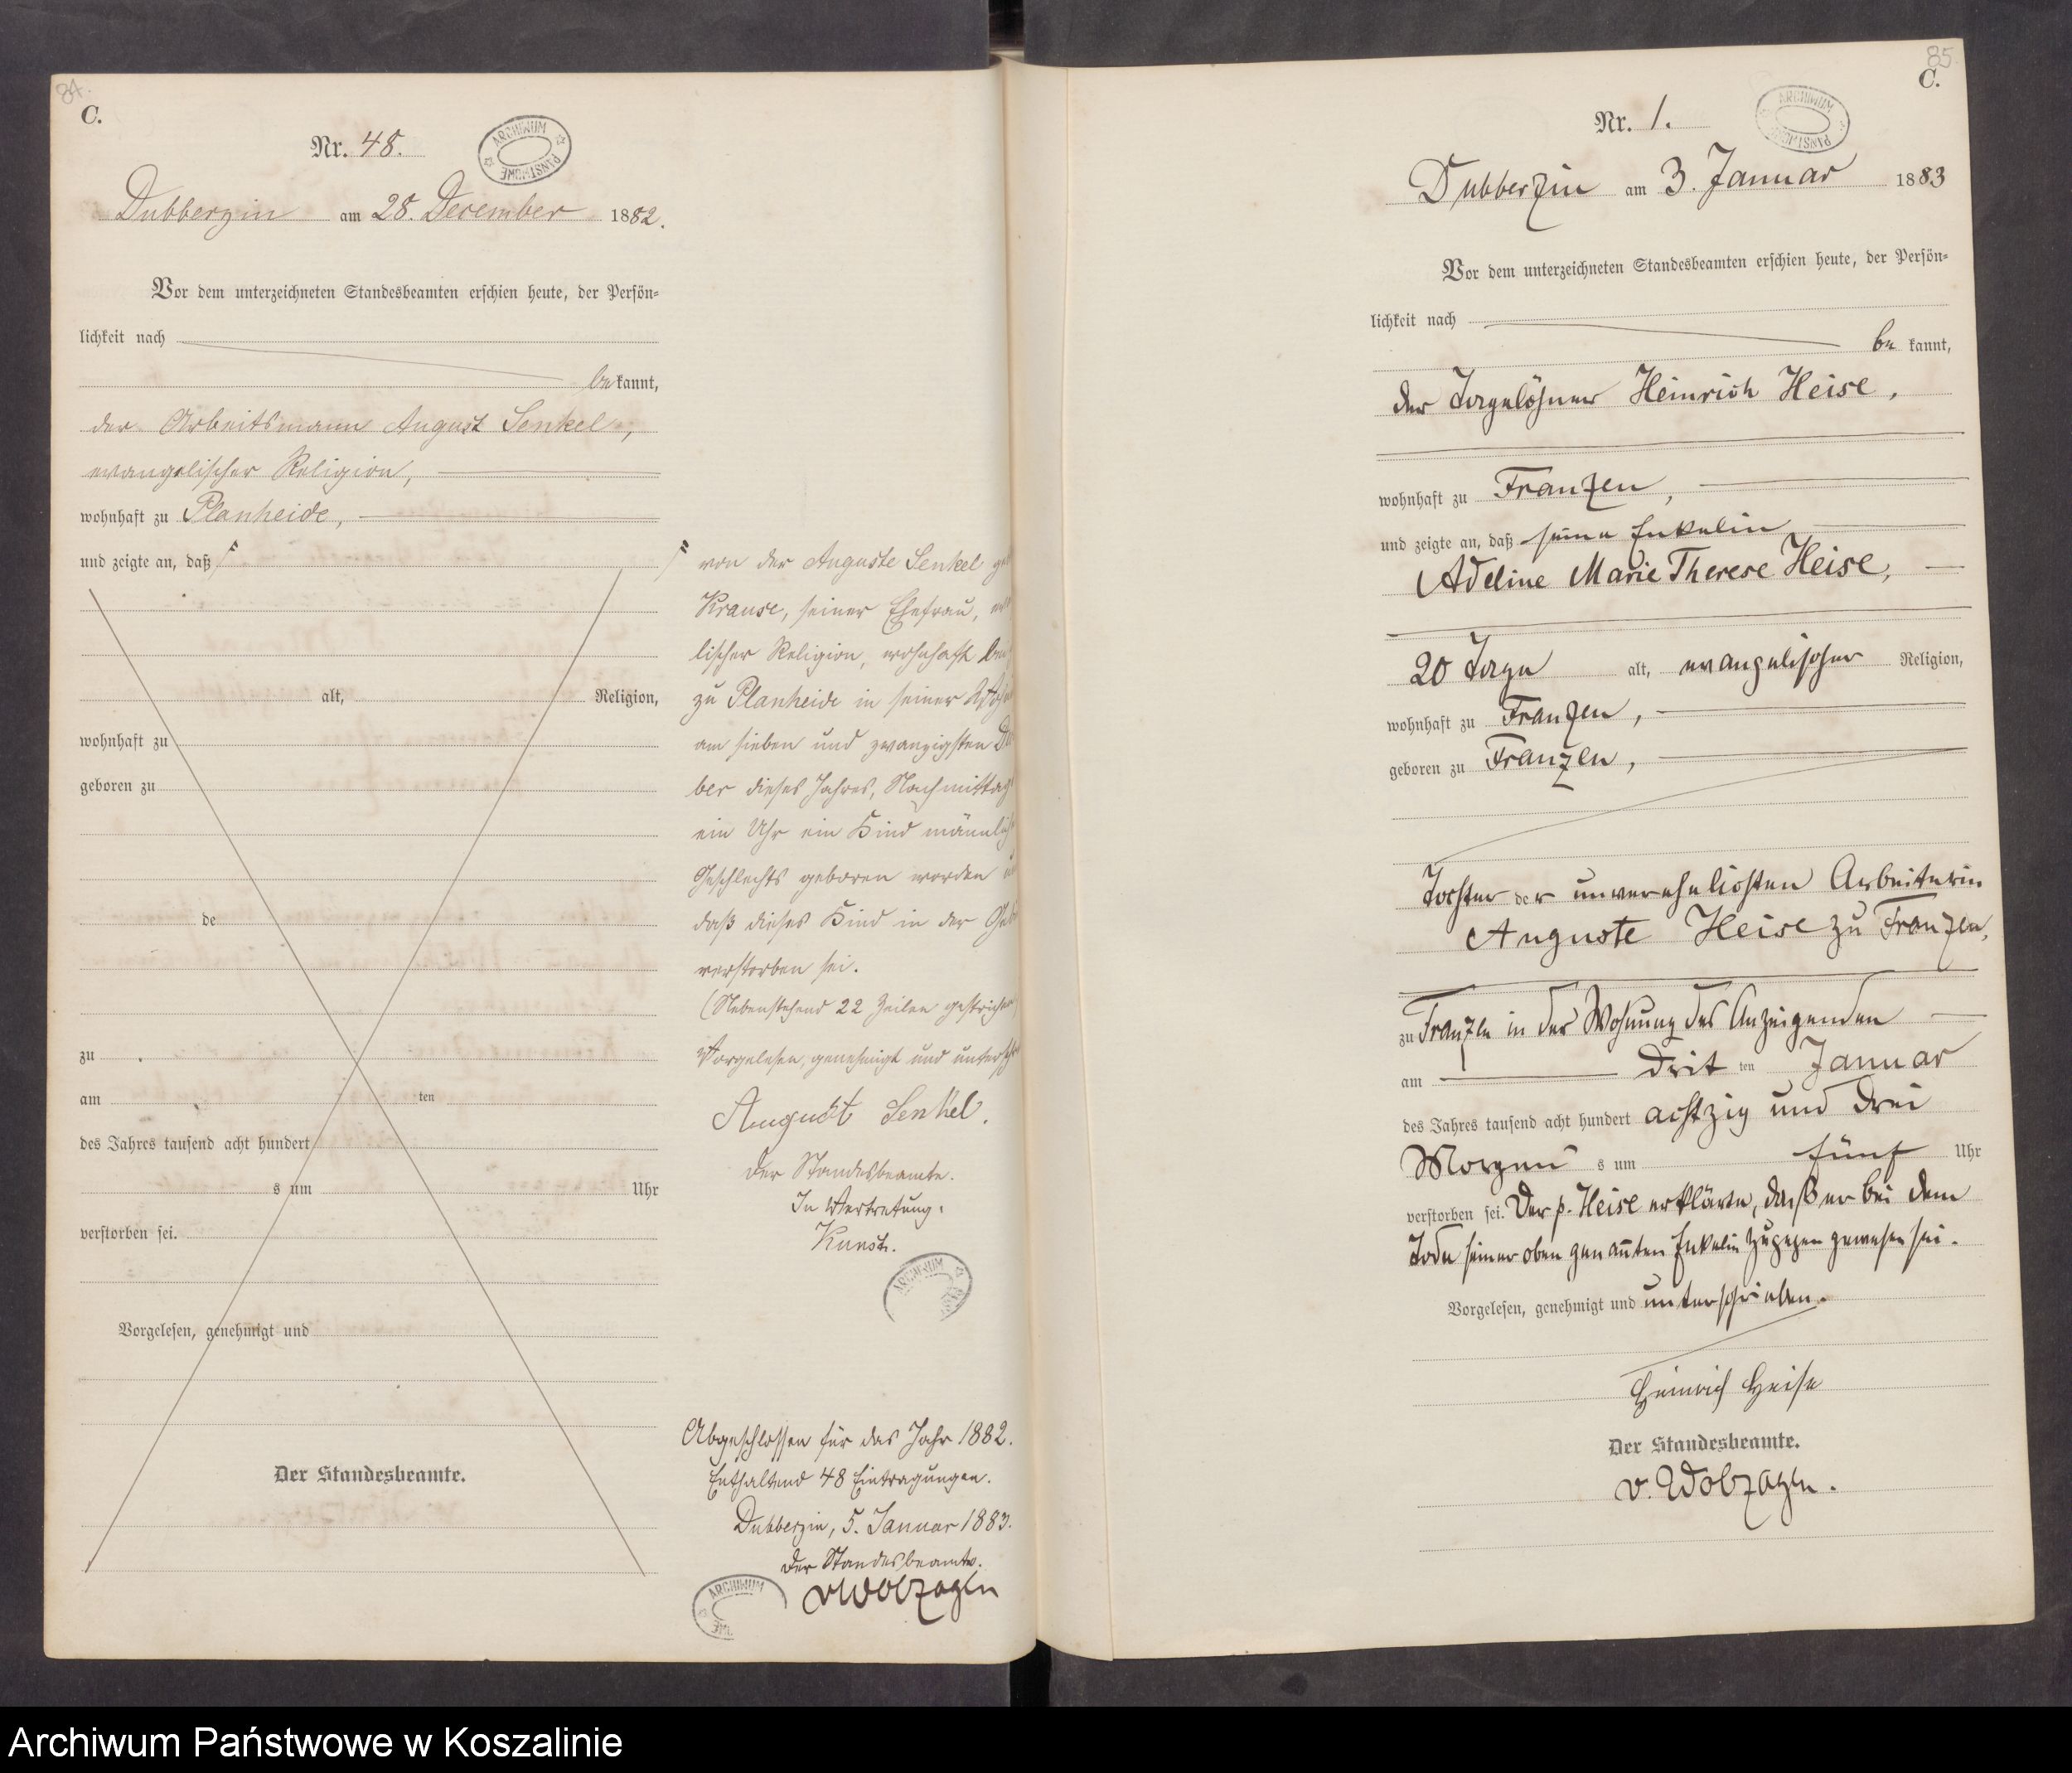 84.
C.
Nr. 48.
ARCHIWUM PAŃSTWOWE
Dubberzin am 28. December 1882.
Vor dem unterzeichneten Standesbeamten erschien heute, der Persön-
lichkeit nach
be kannt,
der Arbeitsmann August Senkel,
evangelischer Religion,
wohnhaft zu Planheide,
und zeigte an, daß
alt, Religion,
wohnhaft zu
geboren zu
de
zu
am ten
des Jahres tausend acht hundert
s um Uhr
verstorben sei.
Vorgelesen, genehmigt und
Der Standesbeamte.
von der Auguste Senkel
Krause, seiner Ehefrau,
lischer Religion, wohnhaft
zu Planheide in seiner
am sieben und zwanzigsten
ber dieses Jahres, Nachmittag
ein Uhr ein Kind männlich
Geschlechts geboren worden
daß dieses Kind in der
verstorben sei.
(Nebenstehend 22 Zeilen gestrichen)
Vorgelesen, genehmigt und
August Senkel.
Der Standesbeamte.
In Vertretung.
Kunst.
ARCHIWUM
Abgeschlossen für das Jahr 1882.
Enthaltend 48 Eintragungen.
Dubberzin, 5. Januar 1883.
Der Standesbeamte.
vWolzogen
ARCHIWUM
85
C.
Nr. 1.
ARCHIWUM PAŃSTWOWE
Dubberzin am 3. Januar 1883
Vor dem unterzeichneten Standesbeamten erschien heute, der Persön-
lichkeit nach
be kannt,
der Tagelöhner Heinrich Heise,
wohnhaft zu Franzen,
und zeigte an, daß seine Enkelin
Adeline Marie Therese Heise,
20 Tage alt, evangelischer Religion,
wohnhaft zu Franzen,
geboren zu Franzen,
Tochter der unverehelichten Arbeiterin
Auguste Heise zu Franzen,
zu Franzen in der Wohnung des Anzeigenden
am drit ten Januar
des Jahres tausend acht hundert achtzig und drei
Morgens um fünf Uhr
verstorben sei. Der p. Heise erklärte, daß er bei dem
Tode seiner oben genannten Enkelin zugegen gewesen sei.
Vorgelesen, genehmigt und unterschrieben.
Heinrich Heise
Der Standesbeamte.
v. Wolzogen.
Archiwum Państwowe w Koszalinie